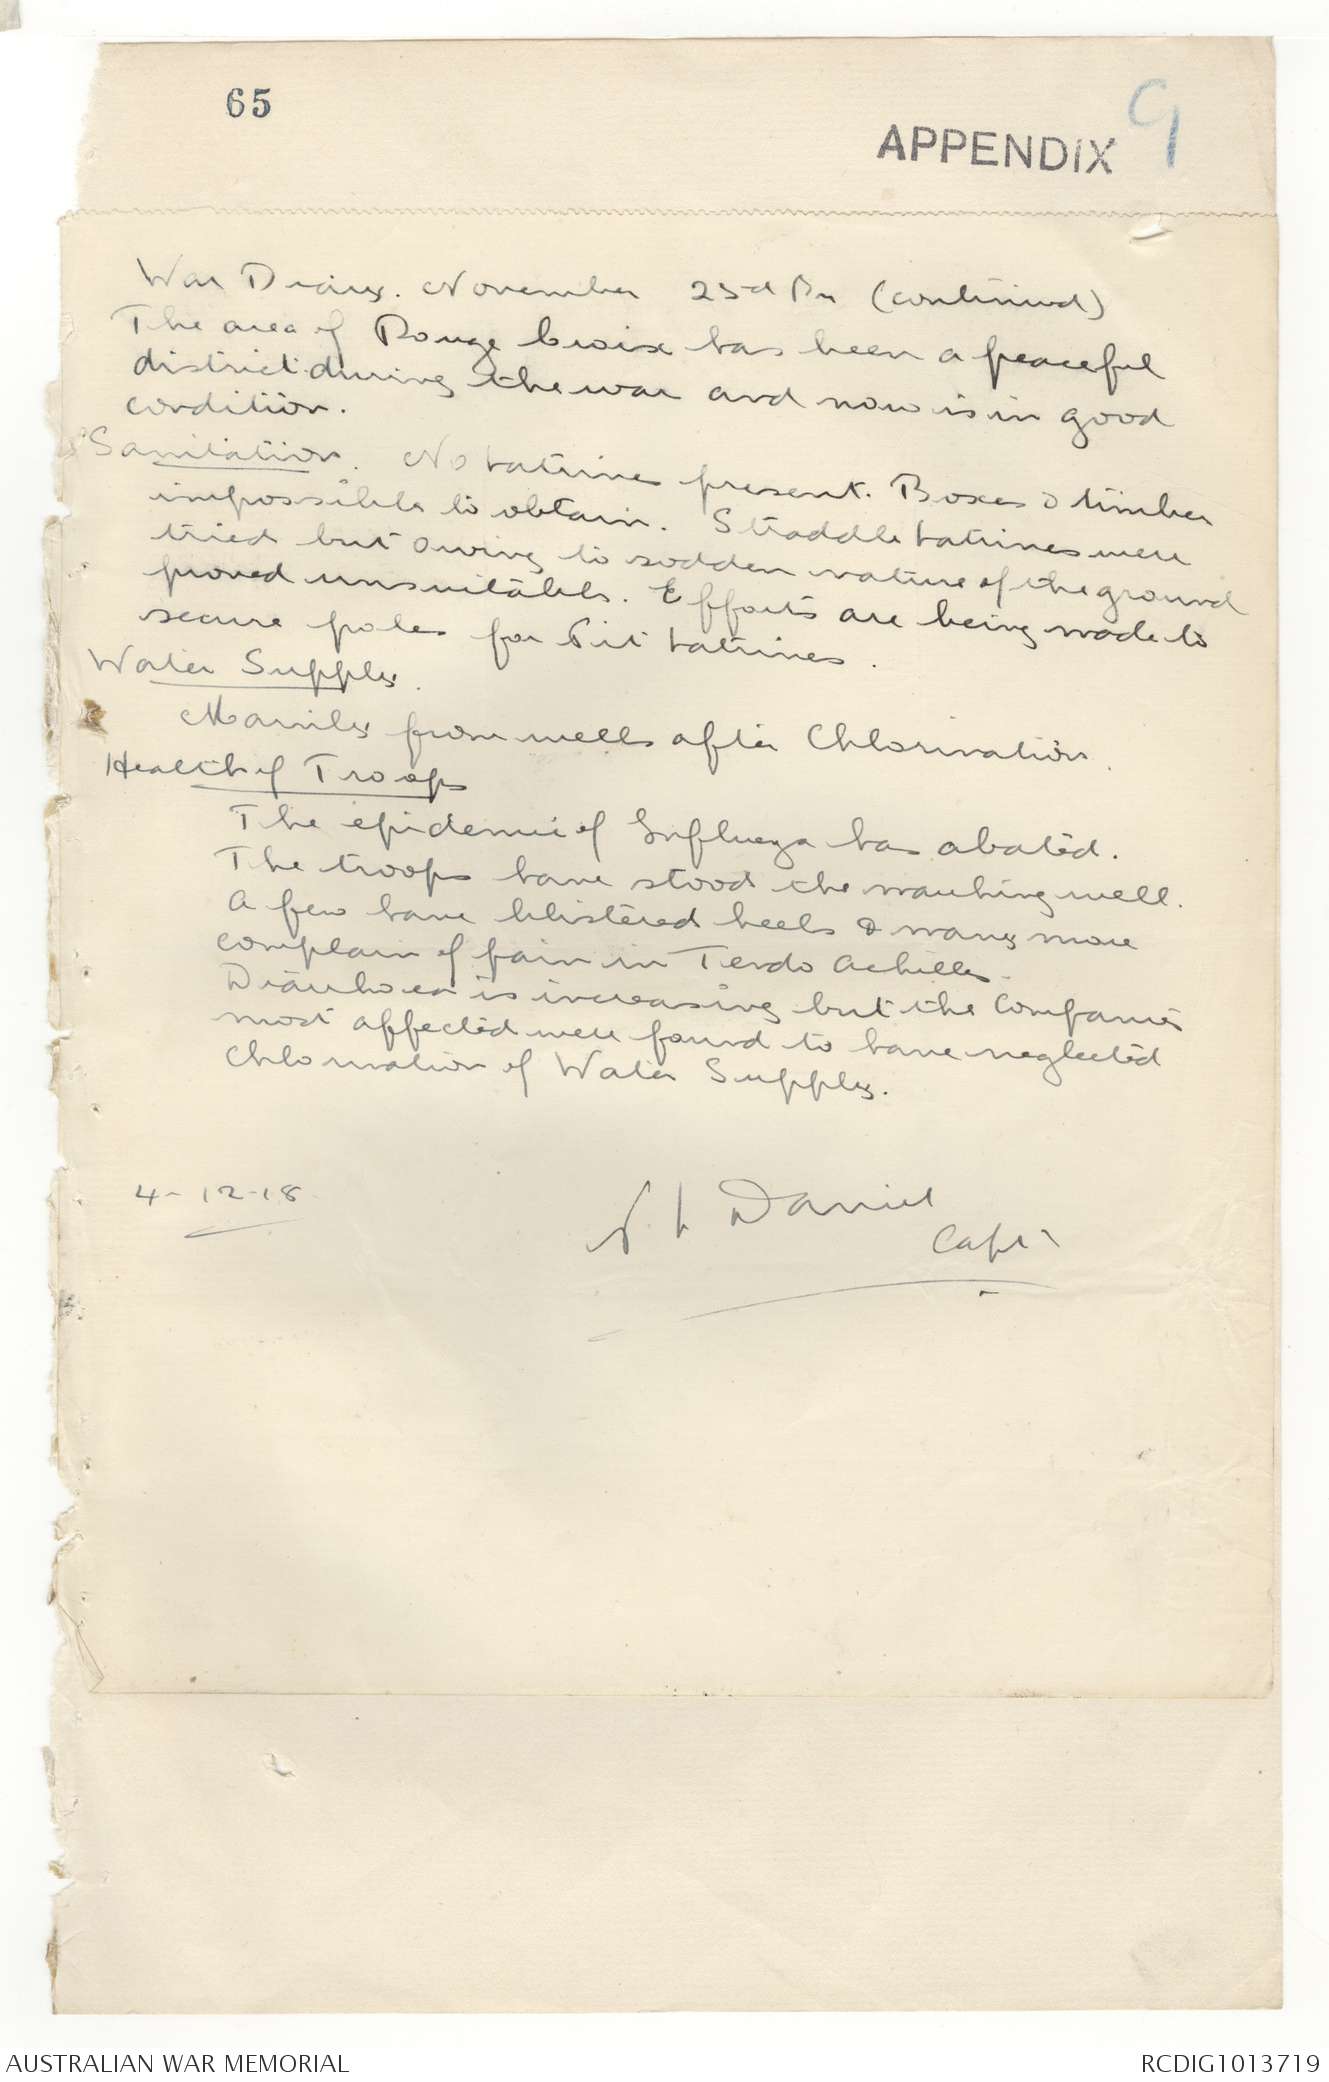 65
APPENDIX 9
War Diary. November 23rd Bn (continued)
The area of Rouge Croix has been a peaceful
district during the war and now is in good
condition.
Sanitation. No latrines present. Boxes & timber
impossible to obtain. Straddle latrines were
tried but owing to sodden nature of the ground
proved unsuitable. Efforts are being made to
secure poles for Pit latrines.
Water Supply.
Mainly from wells after Chlorination.
Health of Troops
The epidemic of Influenza has abated.
The troops have stood the marching well.
A few have blistered heels & many more
complain of pain in Tendo Achilles.
Diarrhoea is increasing but the Companies
most affected were found to have neglected
Chlorination of Water Supply.
4-12-18
Daniel
Capt
AUSTRALIAN WAR MEMORIAL
RCDIG1013719